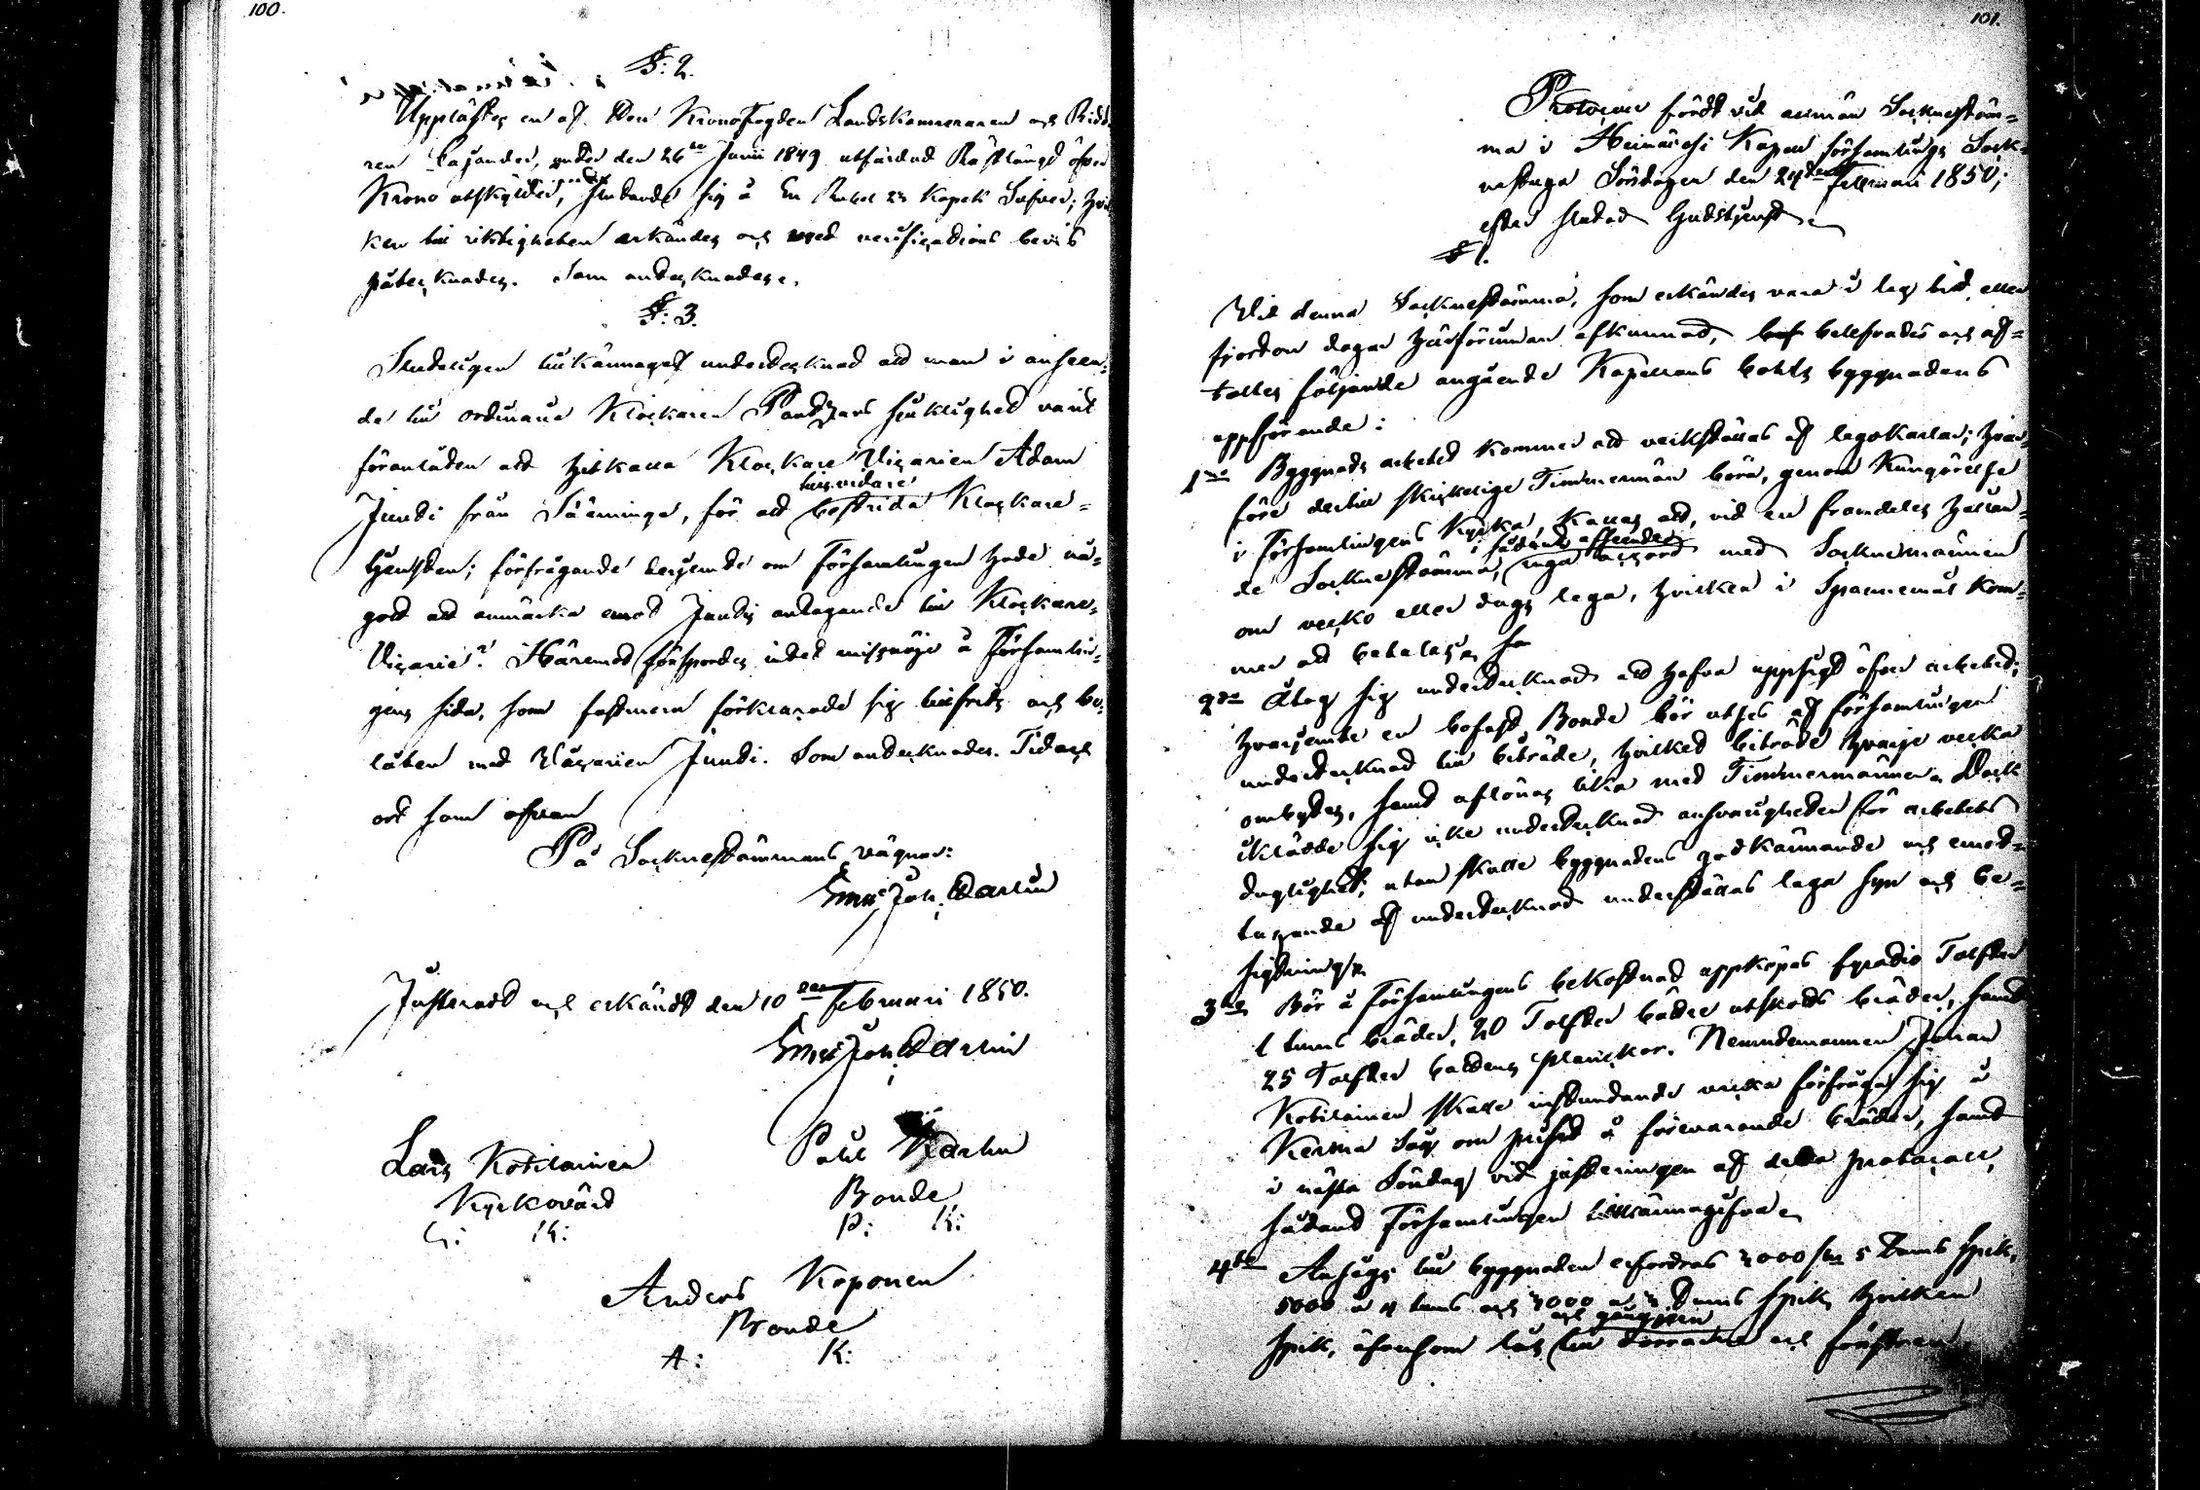 100.
§: 2.
Upplästes en af Herr Kronofogden Landskamreraren och Ridda-
ren Cajander, under den 26te Junii 1849 utfärdad Rästlängd öfver
Krono utskylder, slutande sig å En Rubel 23 Kopek Silfver; hvil-
ken till riktigheten erkändes och med verifications bevis
påtecknades. Som antecknades.
§: 3.
Slutligen tillkännagaf undertecknad att man i anseen-
de till ordinarie Klockaren Pandzars sjuklighet varit
föranlåten att hitkalla Klockare Vicarien Adam
Jundi från Sääminge, för att bestrida Klockare-
tills vidare
tjensten; förfrågande derjemte om Församlingen hade nå-
got att anmärka emot Jundis antagande till Klockare-
Vicarie? Häremot försportes intet missnöje å Församlin-
gens sida, som fastmera förklarade sig tillfreds och be-
låten med Vicarien Jundi. Som antecknades. Tid och
ort som ofvan
På Sockenestämmans vägnar:
Emil Joh. Carlin
Justeradt och erkändt den 10de Februari 1850.
Emil Joh. Carlin
Lars Kotilainen
Kyrkovärd
L: K:
Påhl
Bonde
P: K:
Anders Koponen
Bonde
A: K:
101.
Protocoll fördt vid allmän Socknestäm-
ma i Heinävesi Kapell församlings Sock-
nestuga Söndagen den 24de Februari 1850;
efter slutad Gudstjenst.
§ 1.
Vid denna Socknestämma, som erkändes vara i lag tid, eller
fjorton dagar härförinnan afkunnad, beslefvades och af-
taltes följande angående Kapellans bohls byggnadens
uppförande:
1mo Byggnads arbetet kommer att verkställas af legokarlar; hvar-
före dertill skickelige Timmermän böra, genom Kungörelse
i Församlingens Kyrka, kallas att, vid en framdeles hållan-
de Socknestämma, inga accord med Sockenemännen
i sådant afseende
om vecko eller dags lega, hvilken i Spannemål kom-
mer att betalas.
2do Åtog sig undertecknad att hafva uppsigt öfver arbetet;
hvarjemte en bofast Bonde bör utses af församlingen
undertecknad till biträde, hvilket biträde hvarje vecka
ombytes, samt aflönas lika med Timmermännen. Dock
iklädde sig icke undertecknad ansvarigheten för arbetets
duglighet; utan skulle byggnadens godkännande och emot-
tagande af undertecknad underställas laga syn och be-
sigtning.
3tio Bör å Församlingens bekostnad uppköpas fyratio Tolfter
1 tums bräder, 20 Tolfter bättre utskotts bräder, samt
25 Tolfter plankor. Nemndemannen Johan
Kotilainen skulle instundande vecka förfråga sig å
Kerma Såg om priset å förevarande bräder, samt
i nästa Söndag vid justeringen af detta protocoll,
sådant Församlingen tillkännagifva.
4to Ansågs till byggnaden erfordras 2000 st. 5 Tums spik,
5000 a 4 tums och 3000 a 3 Tums spik, hvilken
och gångjern
spik, äfvensom lås till dörrarne och fönstren